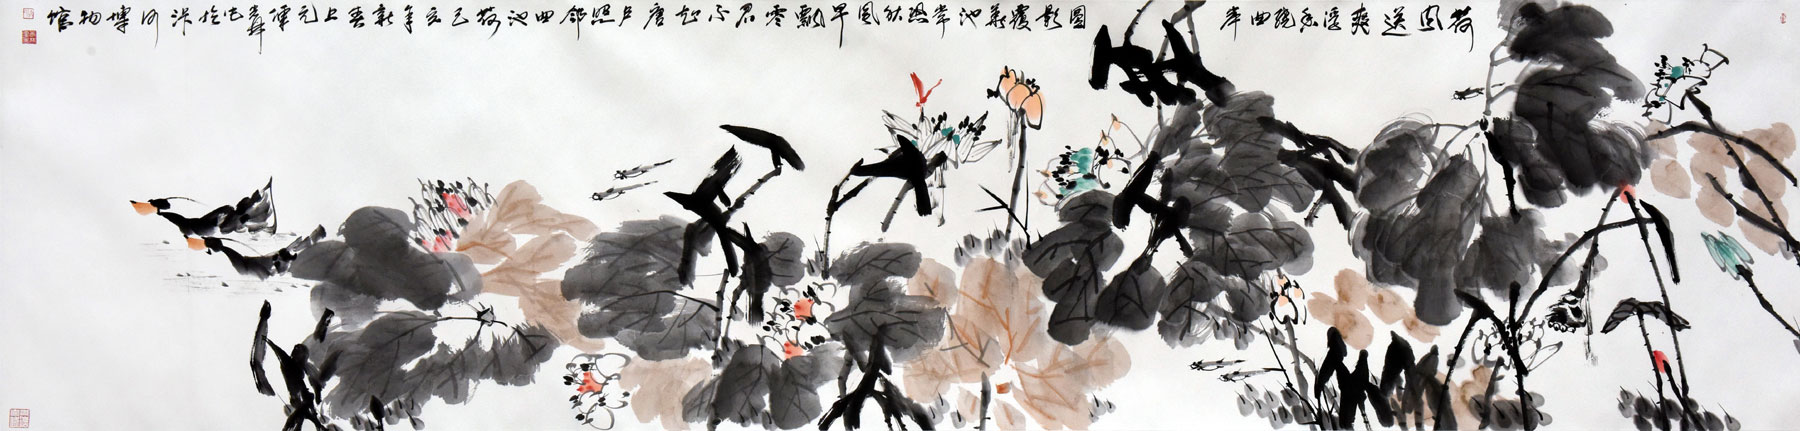 荷风送爽浮香绕曲岸圆影覆华池常恐秋风早飘零君不知唐卢照邻曲池荷己亥年新春上元 博物馆